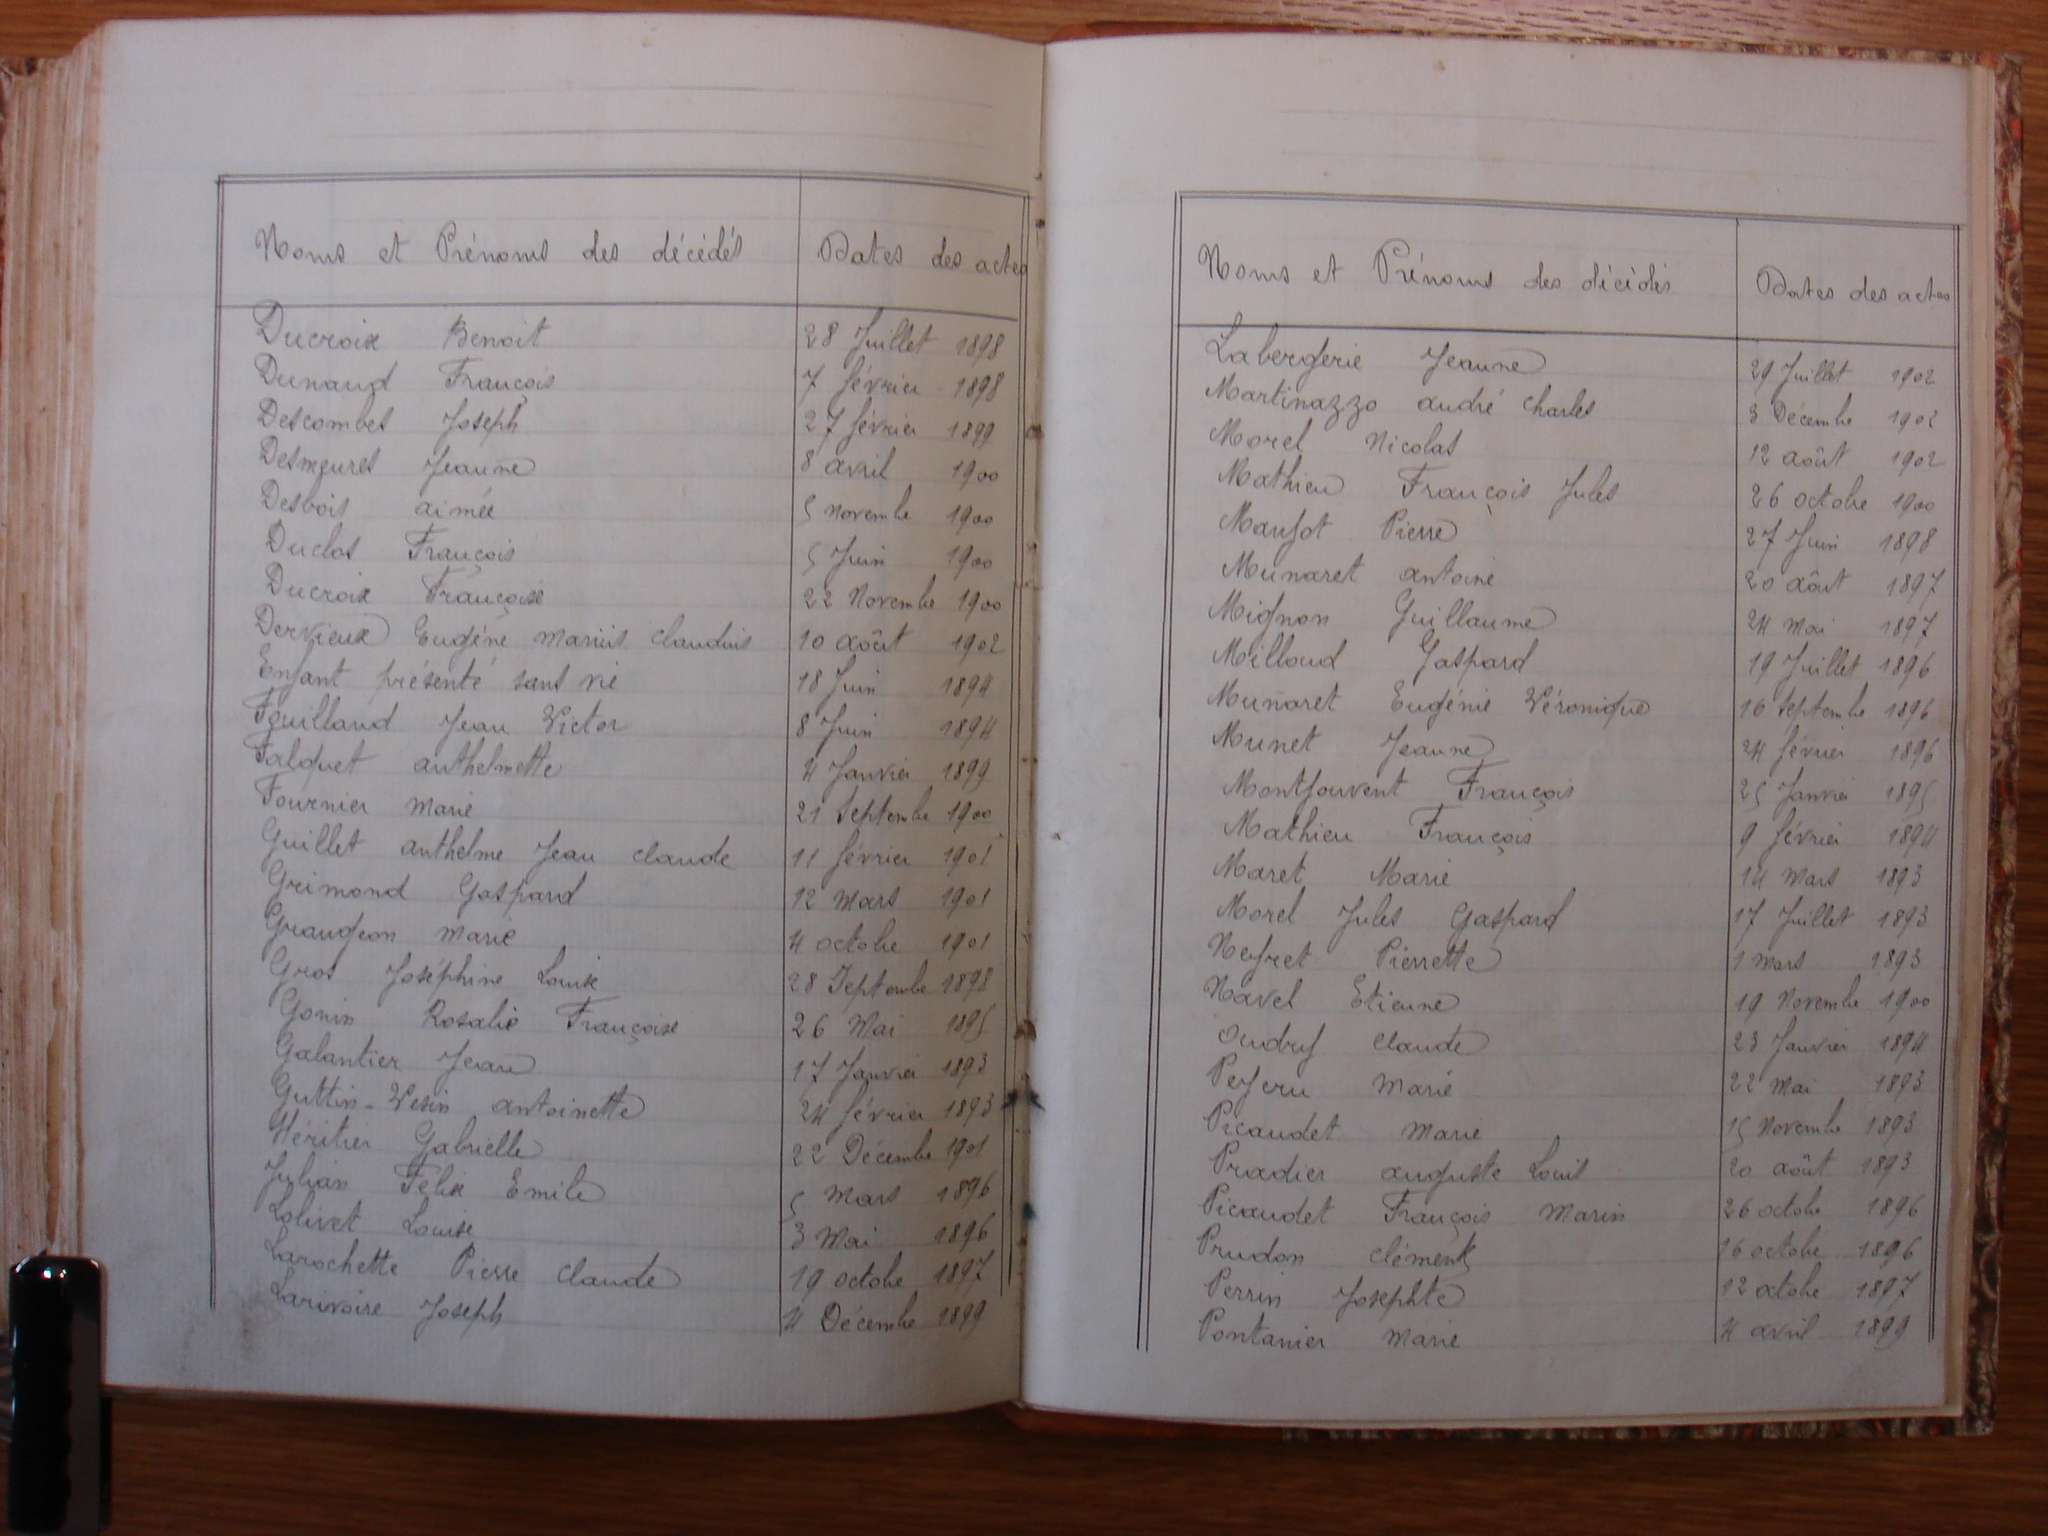 Noms et Prénoms des décédés Dates des actes
Ducroix Benoit 28 Juillet 1898
Dunand François 7 février 1898
Descombes Joseph 27 février 1899
Desmeures Jeanne 8 avril 1900
Desbois aimée 5 novembre 1900
Duclos François 5 Juin 1900
Ducroix Françoise 22 Novembre 1900
Dervieux Eugène Marius Claudius 10 août 1902
Enfant présenté sans vie 18 Juin 1894
Feuilland Jean Victor 8 Juin 1894
Falquet anthelmette 4 Janvier 1899
Fournier Marie 21 Septembre 1900
Guillet anthelme Jean claude 11 février 1901
Grimond Gaspard 12 Mars 1901
Grangeon Marie 4 octobre 1901
Gros Joséphine Louise 28 Septembre 1898
Gonin Rosalie Françoise 26 Mai 1895
Galantier Jean 17 Janvier 1893
Guttin-Vesin antoinette 24 février 1893
Héritier Gabrielle 22 Décembre 1901
Julian Félix Emile 5 Mars 1896
Lolivet Louise 3 Mai 1896
Larochette Pierre Claude 19 octobre 1897
Larivoire Joseph 4 Décembre 1899
Noms et Prénoms des décédés Dates des actes
Labergerie Jeanne 29 Juillet 1902
Martinazzo andré charles 3 Décembre 1902
Morel Nicolas 12 août 1902
Mathieu François Jules 26 octobre 1900
Maujot Pierre 27 Juin 1898
Munaret antoine 20 août 1897
Mignon Guillaume 24 mai 1897
Milloud Gaspard 19 Juillet 1896
Munaret Eugénie Véronique 16 Septembre 1896
Munet Jeanne 24 février 1896
Montfouvent François 25 Janvier 1895
Mathieu François 9 février 1894
Maret Marie 14 Mars 1893
Morel Jules Gaspard 17 Juillet 1893
Neyret Pierrette 1 Mars 1893
Navel Etienne 19 Novembre 1900
Oudry Claude 23 Janvier 1894
Marie 22 Mai 1893
Picaudet Marie 15 Novembre 1893
Pradier auguste Louis 20 août 1893
Picaudet François Marin 26 octobre 1896
Prudon Clément 16 octobre 1896
Perrin Josephte 12 octobre 1897
Pontanier Marie 4 avril 1899